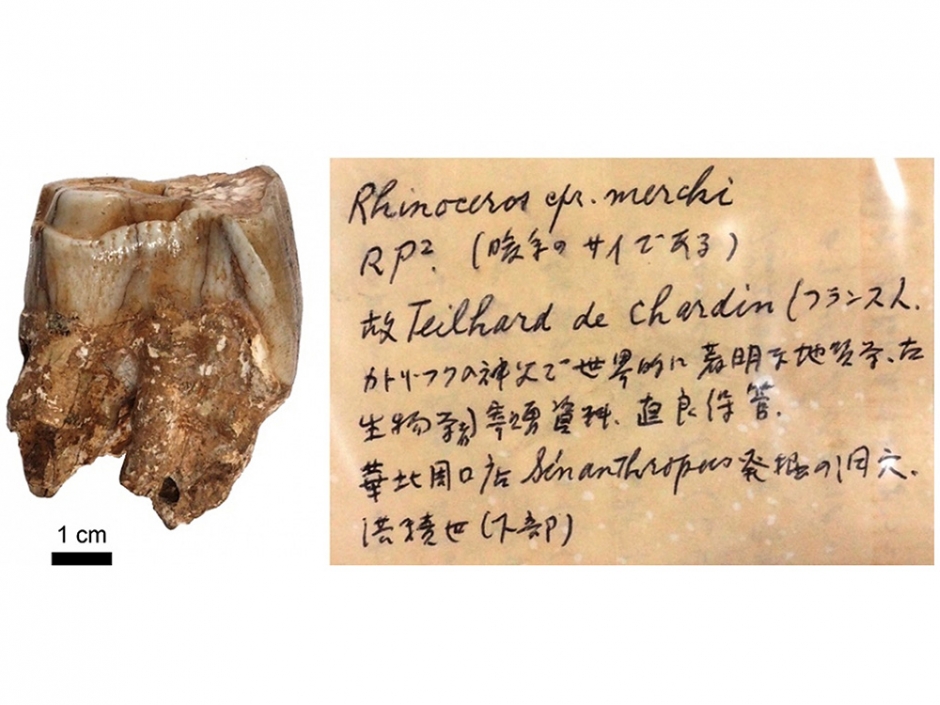 1 cm
Rhinoceros cfr. mercki
RP². (暖系のサイである)
故 Teilhard de Chardin (フランス人.
カトリックの神父で世界的に著明な地質学、古
生物学者)寄贈資料、直良保管.
華北周口店 Sinanthropus 発掘の洞穴.
洪積世(下部)